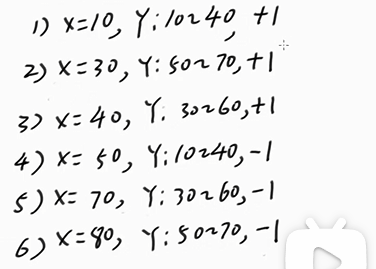 1) X=10, Y: 10~40, +1
2) X=30, Y: 50~70, +1
3) X=40, Y: 30~60, +1
4) X=50, Y: 10~40, -1
5) X=70, Y: 30~60, -1
6) X=80, Y: 50~70, -1